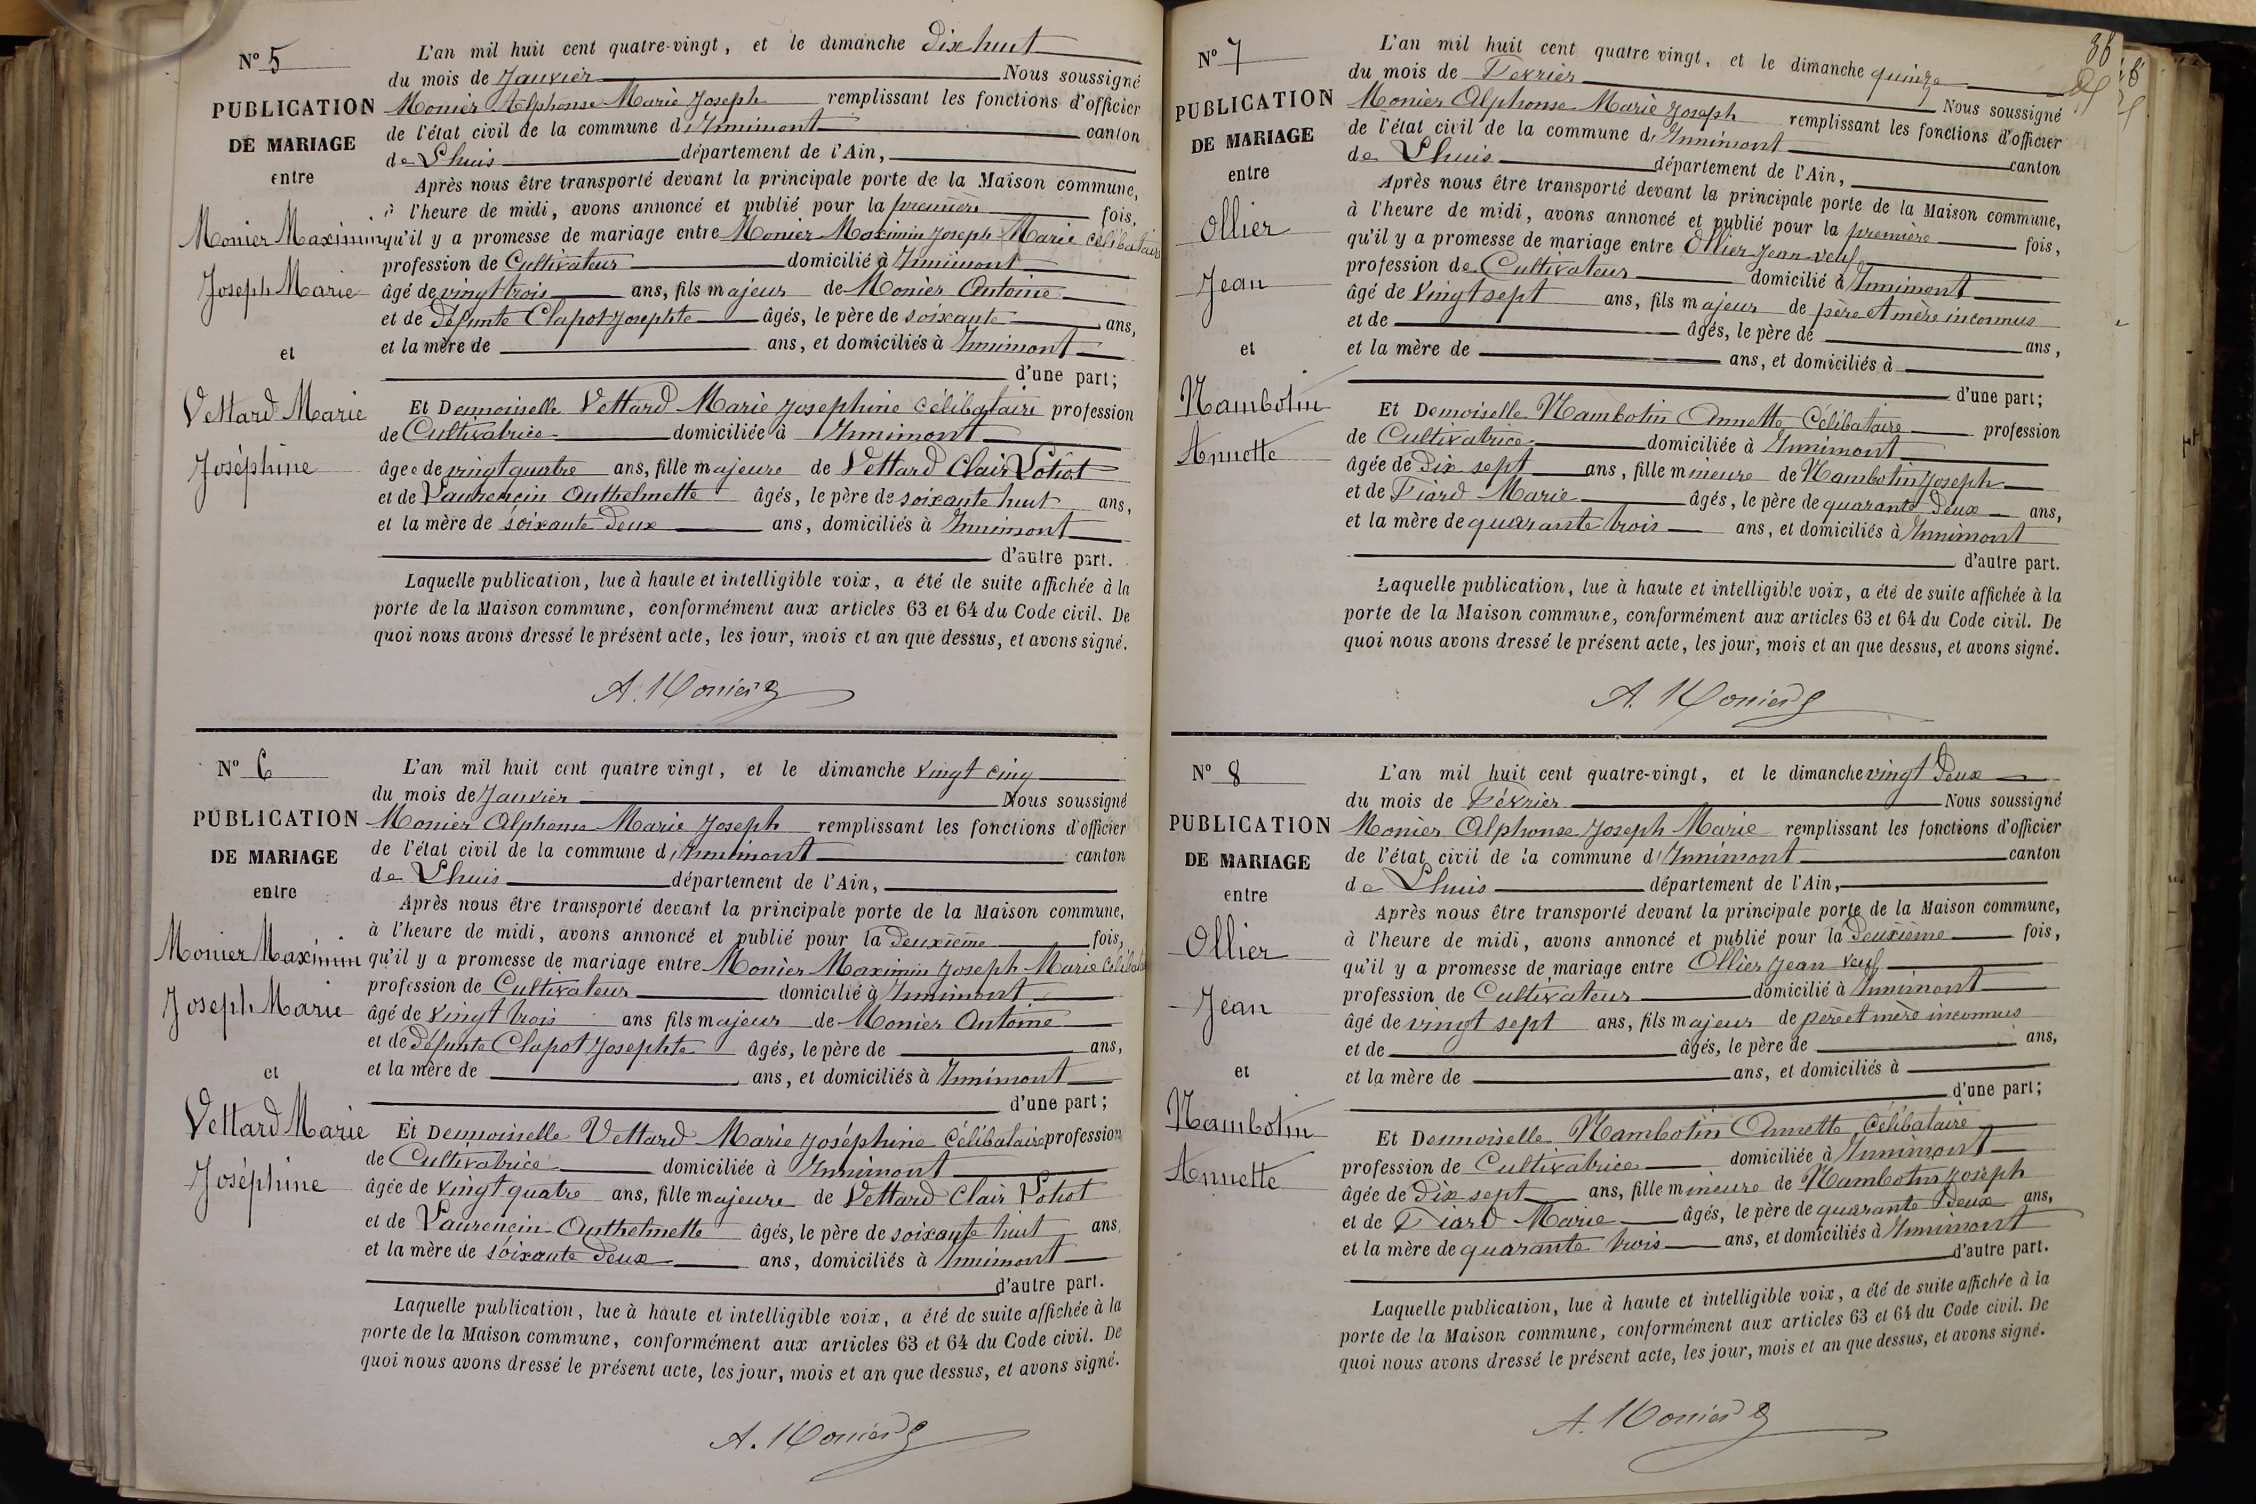 N° 5
PUBLICATION
DE MARIAGE
entre
Monier Maximin
Joseph Marie
et
Vettard Marie
Joséphine
L'an mil huit cent quatre-vingt, et le dimanche Dix huit
du mois de Janvier Nous soussigné
Monier Alphonse Marie Joseph remplissant les fonctions d'officier
de l'état civil de la commune d'Innimont canton
de Lhuis département de l'Ain,
Après nous être transporté devant la principale porte de la Maison commune,
à l'heure de midi, avons annoncé et publié pour la première fois,
qu'il y a promesse de mariage entre Monier Maximin Joseph Marie Célibataire
profession de Cultivateur domicilié à Innimont
âgé de vingt trois ans, fils majeur de Monier Antoine
et de Défunte Clapot Josephte âgés, le père de soixante ans,
et la mère de ans, et domiciliés à Innimont
d'une part;
Et Demoiselle Vettard Marie Josephine Célibataire profession
de Cultivatrice domiciliée à Innimont
âgée de vingt quatre ans, fille majeure de Vettard Clair
et de Laurencin Anthelmette âgés, le père de soixante huit ans,
et la mère de soixante Deux ans, domiciliés à Innimont
d'autre part.
Laquelle publication, lue à haute et intelligible voix, a été de suite affichée à la
porte de la Maison commune, conformément aux articles 63 et 64 du Code civil. De
quoi nous avons dressé le présent acte, les jour, mois et an que dessus, et avons signé.
A. Monier
N° 6
PUBLICATION
DE MARIAGE
entre
Monier Maximin
Joseph Marie
et
Vettard Marie
Joséphine
L'an mil huit cent quatre vingt, et le dimanche vingt cinq
du mois de Janvier Nous soussigné
Monier Alphonse Marie Joseph remplissant les fonctions d'officier
de l'état civil de la commune d'Innimont canton
de Lhuis département de l'Ain,
Après nous être transporté devant la principale porte de la Maison commune,
à l'heure de midi, avons annoncé et publié pour la Deuxième fois,
qu'il y a promesse de mariage entre Monier Maximin Joseph Marie
profession de Cultivateur domicilié à Innimont
âgé de vingt trois ans fils majeur de Monier Antoine
et de Défunte Clapot Josephte âgés, le père de ans,
et la mère de ans, et domiciliés à Innimont
d'une part;
Et Demoiselle Vettard Marie Joséphine Célibataire profession
de Cultivatrice domiciliée à Innimont
âgée de vingt quatre ans, fille majeure de Vettard Clair
et de Laurencin Anthelmette âgés, le père de soixante huit ans,
et la mère de soixante Deux ans, domiciliés à Innimont
d'autre part.
Laquelle publication, lue à haute et intelligible voix, a été de suite affichée à la
porte de la Maison commune, conformément aux articles 63 et 64 du Code civil. De
quoi nous avons dressé le présent acte, les jour, mois et an que dessus, et avons signé.
A. Monier
N° 7
PUBLICATION
DE MARIAGE
entre
Ollier
Jean
et
Nambotin
Annette
L'an mil huit cent quatre vingt, et le dimanche quinze
du mois de Fevrier Nous soussigné
Monier Alphonse Marie Joseph remplissant les fonctions d'officier
de l'état civil de la commune d'Innimont canton
de Lhuis département de l'Ain,
Après nous être transporté devant la principale porte de la Maison commune,
à l'heure de midi, avons annoncé et publié pour la première fois,
qu'il y a promesse de mariage entre Ollier Jean veuf
profession de Cultivateur domicilié à Innimont
âgé de vingt sept ans, fils majeur de père et mère inconnus
et de âgés, le père de ans,
et la mère de ans, et domiciliés à
d'une part;
Et Demoiselle Nambotin Annette Célibataire profession
de Cultivatrice domiciliée à Innimont
âgée de Dix sept ans, fille mineure de Nambotin Joseph
et de Fiard Marie âgés, le père de quarante Deux ans,
et la mère de quarante trois ans, et domiciliés à Innimont
d'autre part.
Laquelle publication, lue à haute et intelligible voix, a été de suite affichée à la
porte de la Maison commune, conformément aux articles 63 et 64 du Code civil. De
quoi nous avons dressé le présent acte, les jour, mois et an que dessus, et avons signé.
A. Monier
N° 8
PUBLICATION
DE MARIAGE
entre
Ollier
Jean
et
Nambotin
Annette
L'an mil huit cent quatre-vingt, et le dimanche vingt Deux
du mois de Février Nous soussigné
Monier Alphonse Joseph Marie remplissant les fonctions d'officier
de l'état civil de la commune d'Innimont canton
de Lhuis département de l'Ain,
Après nous être transporté devant la principale porte de la Maison commune,
à l'heure de midi, avons annoncé et publié pour la Deuxième fois,
qu'il y a promesse de mariage entre Ollier Jean veuf
profession de Cultivateur domicilié à Innimont
âgé de vingt sept ans, fils majeur de père et mère inconnus
et de âgés, le père de ans,
et la mère de ans, et domiciliés à
d'une part;
Et Demoiselle Nambotin Annette Célibataire
profession de Cultivatrice domiciliée à Innimont
âgée de Dix sept ans, fille mineure de Nambotin Joseph
et de Fiard Marie âgés, le père de quarante Deux ans,
et la mère de quarante trois ans, et domiciliés à Innimont
d'autre part.
Laquelle publication, lue à haute et intelligible voix, a été de suite affichée à la
porte de la Maison commune, conformément aux articles 63 et 64 du Code civil. De
quoi nous avons dressé le présent acte, les jour, mois et an que dessus, et avons signé.
A. Monier